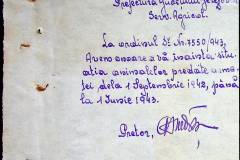 Prefectura Judetului
Serv. Agricol.
La ordinul Dv Nr. 7550/943,
Avem onoare a vă inainta situ-
atia animalelor predate
dela 1 Septembrie 1942, până
la 1 Iunie 1943.
Pretor,